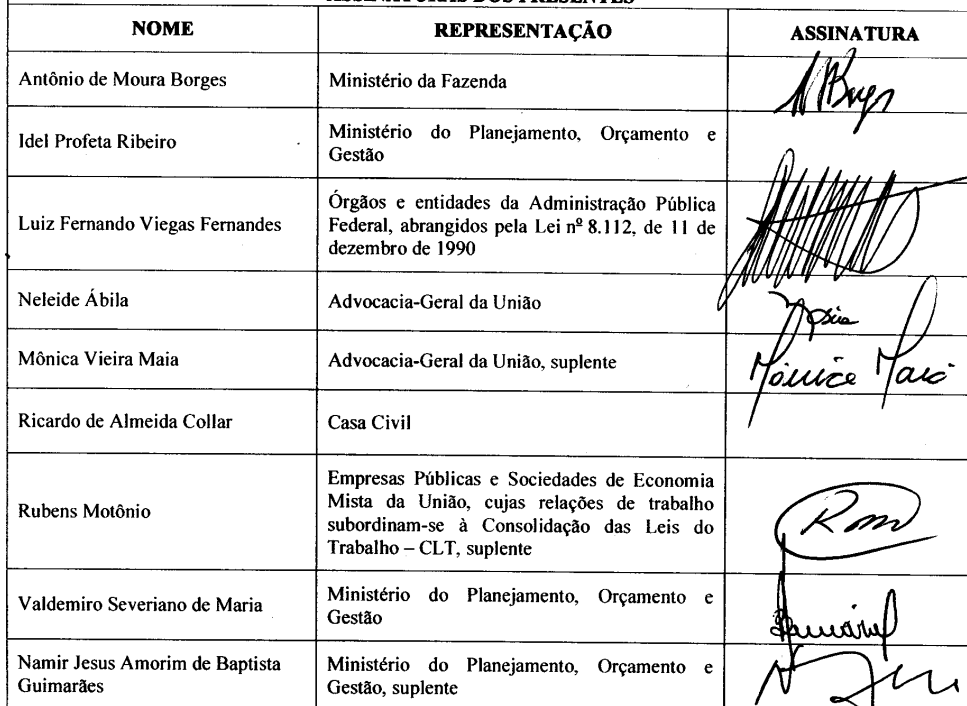 ASSINATURAS DOS PRESENTES
NOME
REPRESENTAÇÃO
ASSINATURA
Antônio de Moura Borges
Ministério da Fazenda
Idel Profeta Ribeiro
Ministério do Planejamento, Orçamento e
Gestão
Luiz Fernando Viegas Fernandes
Órgãos e entidades da Administração Pública
Federal, abrangidos pela Lei nº 8.112, de 11 de
dezembro de 1990
Neleide Ábila
Advocacia-Geral da União
Mônica Vieira Maia
Advocacia-Geral da União, suplente
Mônica Maia
Ricardo de Almeida Collar
Casa Civil
Rubens Motônio
Empresas Públicas e Sociedades de Economia
Mista da União, cujas relações de trabalho
subordinam-se à Consolidação das Leis do
Trabalho – CLT, suplente
Valdemiro Severiano de Maria
Ministério do Planejamento, Orçamento e
Gestão
Namir Jesus Amorim de Baptista
Guimarães
Ministério do Planejamento, Orçamento e
Gestão, suplente